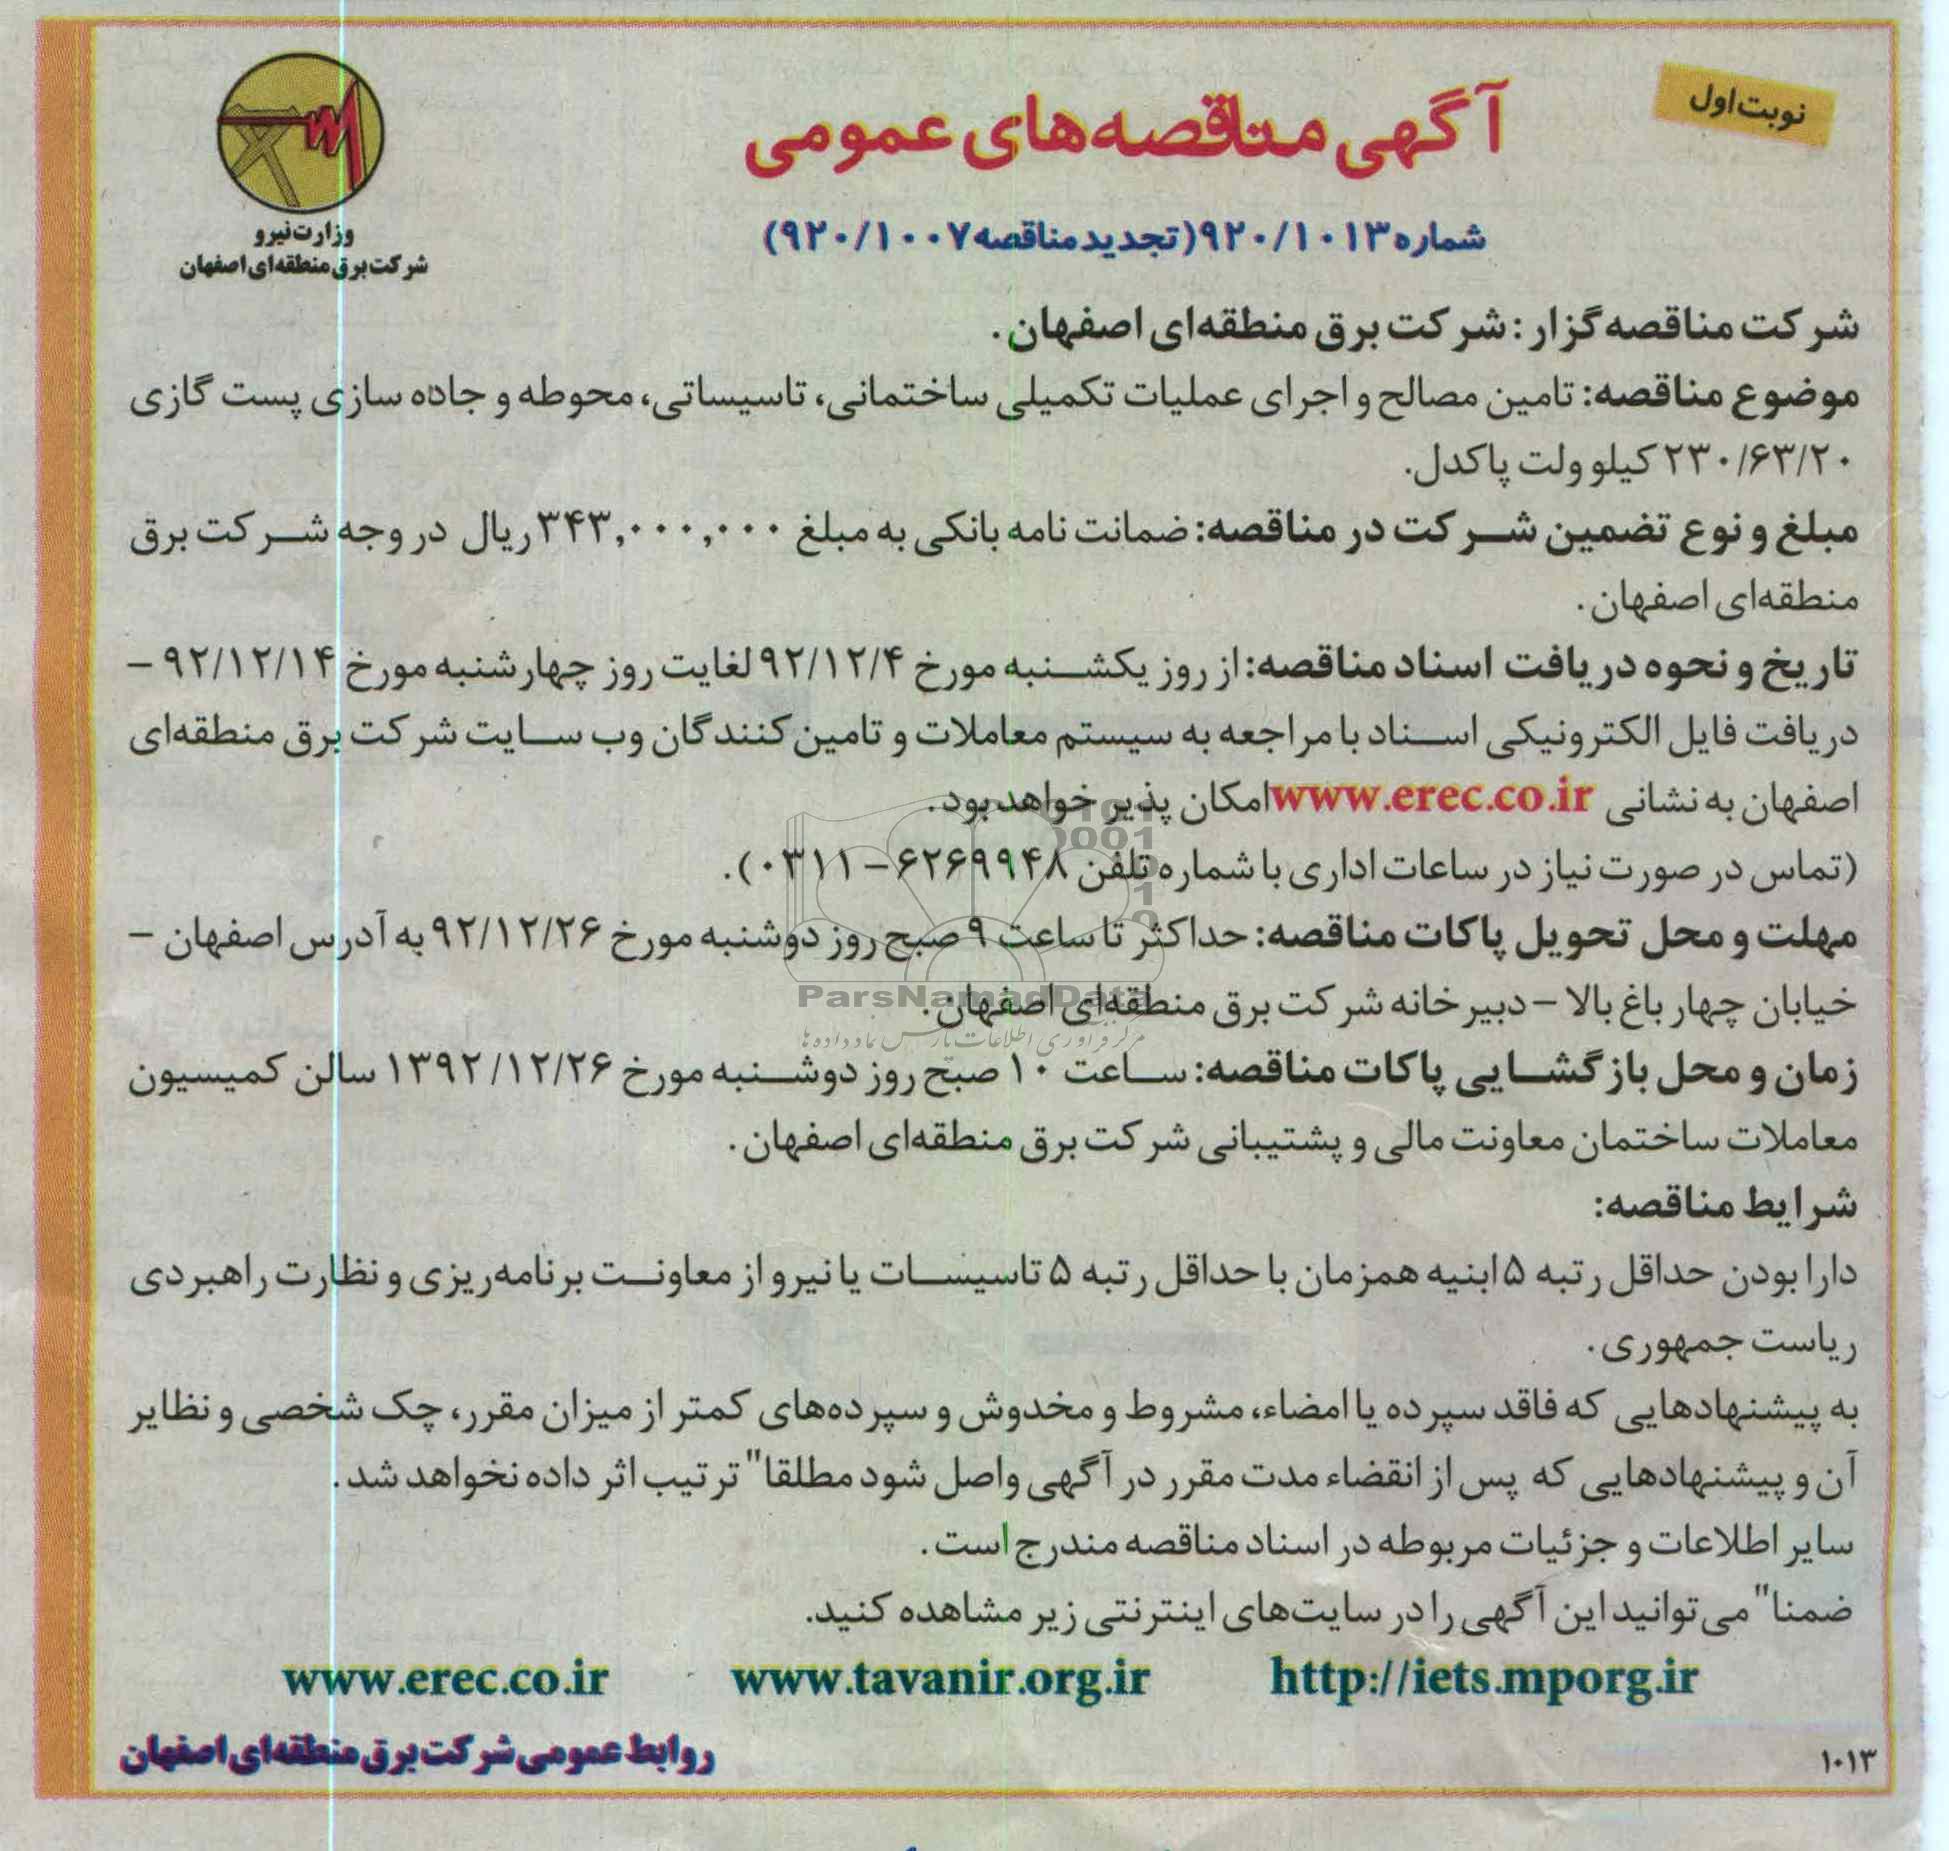 نوبت اول
آگهی مناقصه‌های عمومی
شماره ۹۲۰/۱۰۱۳ (تجدید مناقصه ۹۲۰/۱۰۰۷)
وزارت نیرو
شرکت برق منطقه‌ای اصفهان
شرکت مناقصه گزار : شرکت برق منطقه‌ای اصفهان .
موضوع مناقصه: تامین مصالح و اجرای عملیات تکمیلی ساختمانی، تاسیساتی، محوطه و جاده سازی پست گازی
۲۳۰/۶۳/۲۰ کیلو ولت پاکدل.
مبلغ و نوع تضمین شرکت در مناقصه: ضمانت نامه بانکی به مبلغ ۳۴۳,۰۰۰,۰۰۰ ریال در وجه شرکت برق
منطقه‌ای اصفهان .
تاریخ و نحوه دریافت اسناد مناقصه: از روز یکشنبه مورخ ۹۲/۱۲/۴ لغایت روز چهارشنبه مورخ ۹۲/۱۲/۱۴ –
دریافت فایل الکترونیکی اسناد با مراجعه به سیستم معاملات و تامین کنندگان وب سایت شرکت برق منطقه‌ای
اصفهان به نشانی www.erec.co.ir امکان پذیر خواهد بود .
(تماس در صورت نیاز در ساعات اداری با شماره تلفن ۶۲۶۹۹۴۸ – ۰۳۱۱).
مهلت و محل تحویل پاکات مناقصه: حداکثر تا ساعت ۹ صبح روز دوشنبه مورخ ۹۲/۱۲/۲۶ به آدرس اصفهان –
خیابان چهار باغ بالا – دبیر خانه شرکت برق منطقه‌ای اصفهان .
زمان و محل بازگشایی پاکات مناقصه: ساعت ۱۰ صبح روز دوشنبه مورخ ۱۳۹۲/۱۲/۲۶ سالن کمیسیون
معاملات ساختمان معاونت مالی و پشتیبانی شرکت برق منطقه‌ای اصفهان .
شرایط مناقصه:
دارا بودن حداقل رتبه ۵ ابنیه همزمان با حداقل رتبه ۵ تاسیسات یا نیرو از معاونت برنامه‌ریزی و نظارت راهبردی
ریاست جمهوری .
به پیشنهادهایی که فاقد سپرده یا امضاء، مشروط و مخدوش و سپرده‌های کمتر از میزان مقرر، چک شخصی و نظایر
آن و پیشنهادهایی که پس از انقضاء مدت مقرر در آگهی واصل شود مطلقا" ترتیب اثر داده نخواهد شد .
سایر اطلاعات و جزئیات مربوطه در اسناد مناقصه مندرج است .
ضمنا" می‌توانید این آگهی را در سایت‌های اینترنتی زیر مشاهده کنید.
http://iets.mporg.ir www.tavanir.org.ir www.erec.co.ir
روابط عمومی شرکت برق منطقه‌ای اصفهان
۱۰۱۳
ParsNamadData
مرکز فرآوری اطلاعات پارس نماد داده ها